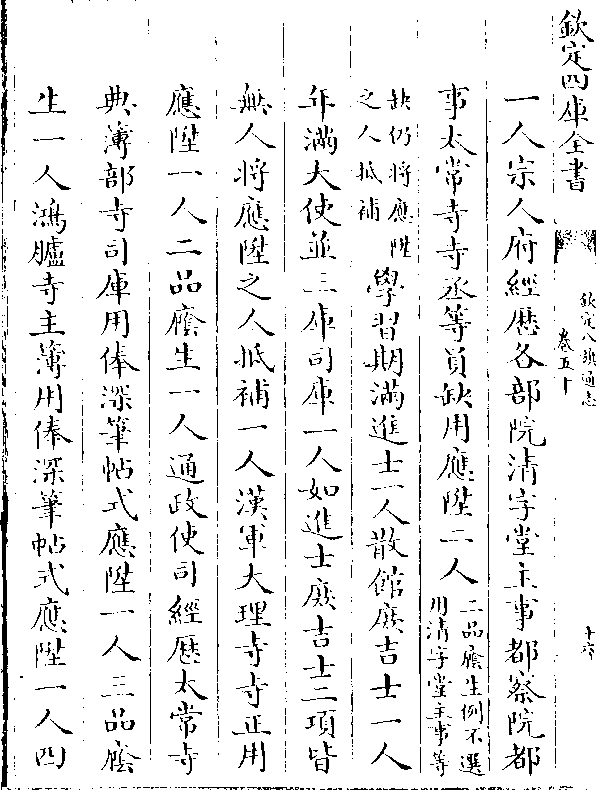 欽定四庫全書
欽定八旗通志
卷五十
十六
一人宗人府經歷各部院清字堂主事都察院都
事太常寺寺丞等員缺用應陞二人二品廕生例不選
用清字堂主事等
缺仍將應陞
之人抵補學習期滿進士一人散館庶吉士一人
年滿大使並三庫司庫一人如進士庶吉士二項皆
無人將應陞之人抵補一人漢軍大理寺寺正用
應陞一人二品廕生一人通政使司經歷太常寺
典簿部寺司庫用俸深筆帖式應陞一人三品廕
生一人鴻臚寺主簿用俸深筆帖式應陞一人四